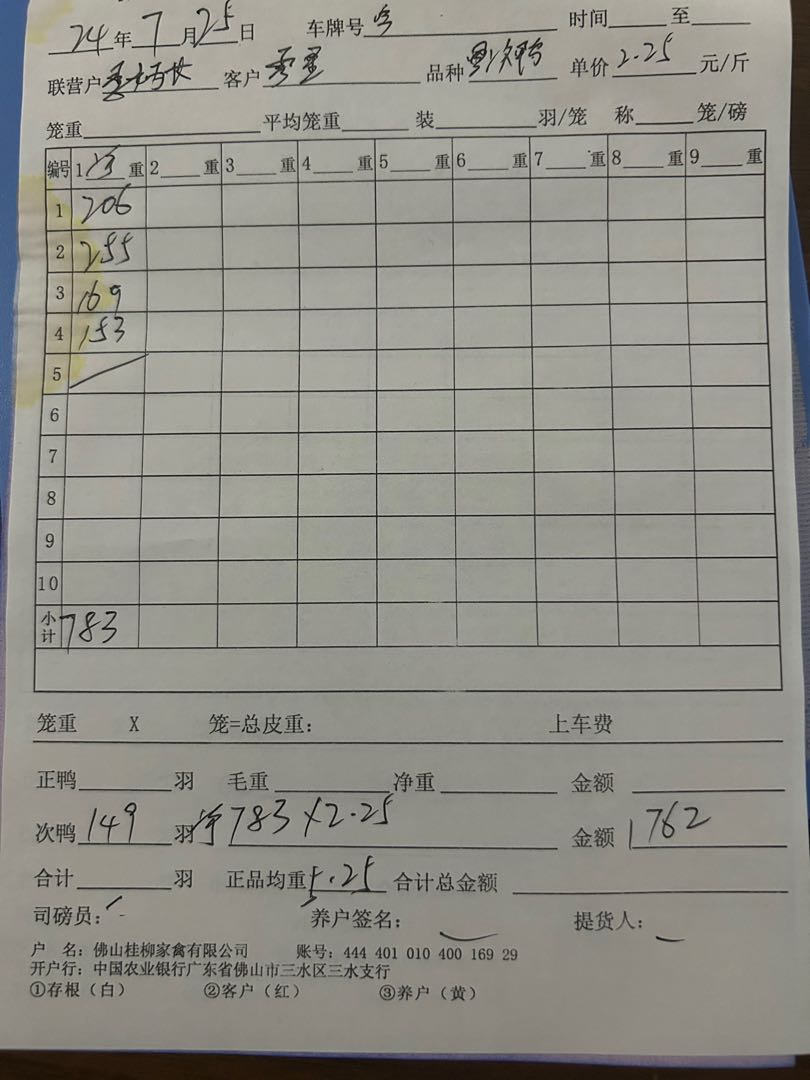 24年7月25日 车牌号 时间 至
联营户 客户 品种 单价2.25元/斤
笼重 平均笼重 装 羽/笼 称 笼/磅
编号 1 重 2 重 3 重 4 重 5 重 6 重 7 重 8 重 9 重
1 206
2 255
3 169
4 153
5
6
7
8
9
10
小计 783
笼重 X 笼=总皮重: 上车费
正鸭 羽 毛重 净重 金额
次鸭149羽 净783×2.25 金额1762
合计 羽 正品均重5.25 合计总金额
司磅员: 养户签名: 提货人:
户 名: 佛山桂柳家禽有限公司 账号: 444 401 010 400 169 29
开户行: 中国农业银行广东省佛山市三水区三水支行
①存根(白) ②客户(红) ③养户(黄)